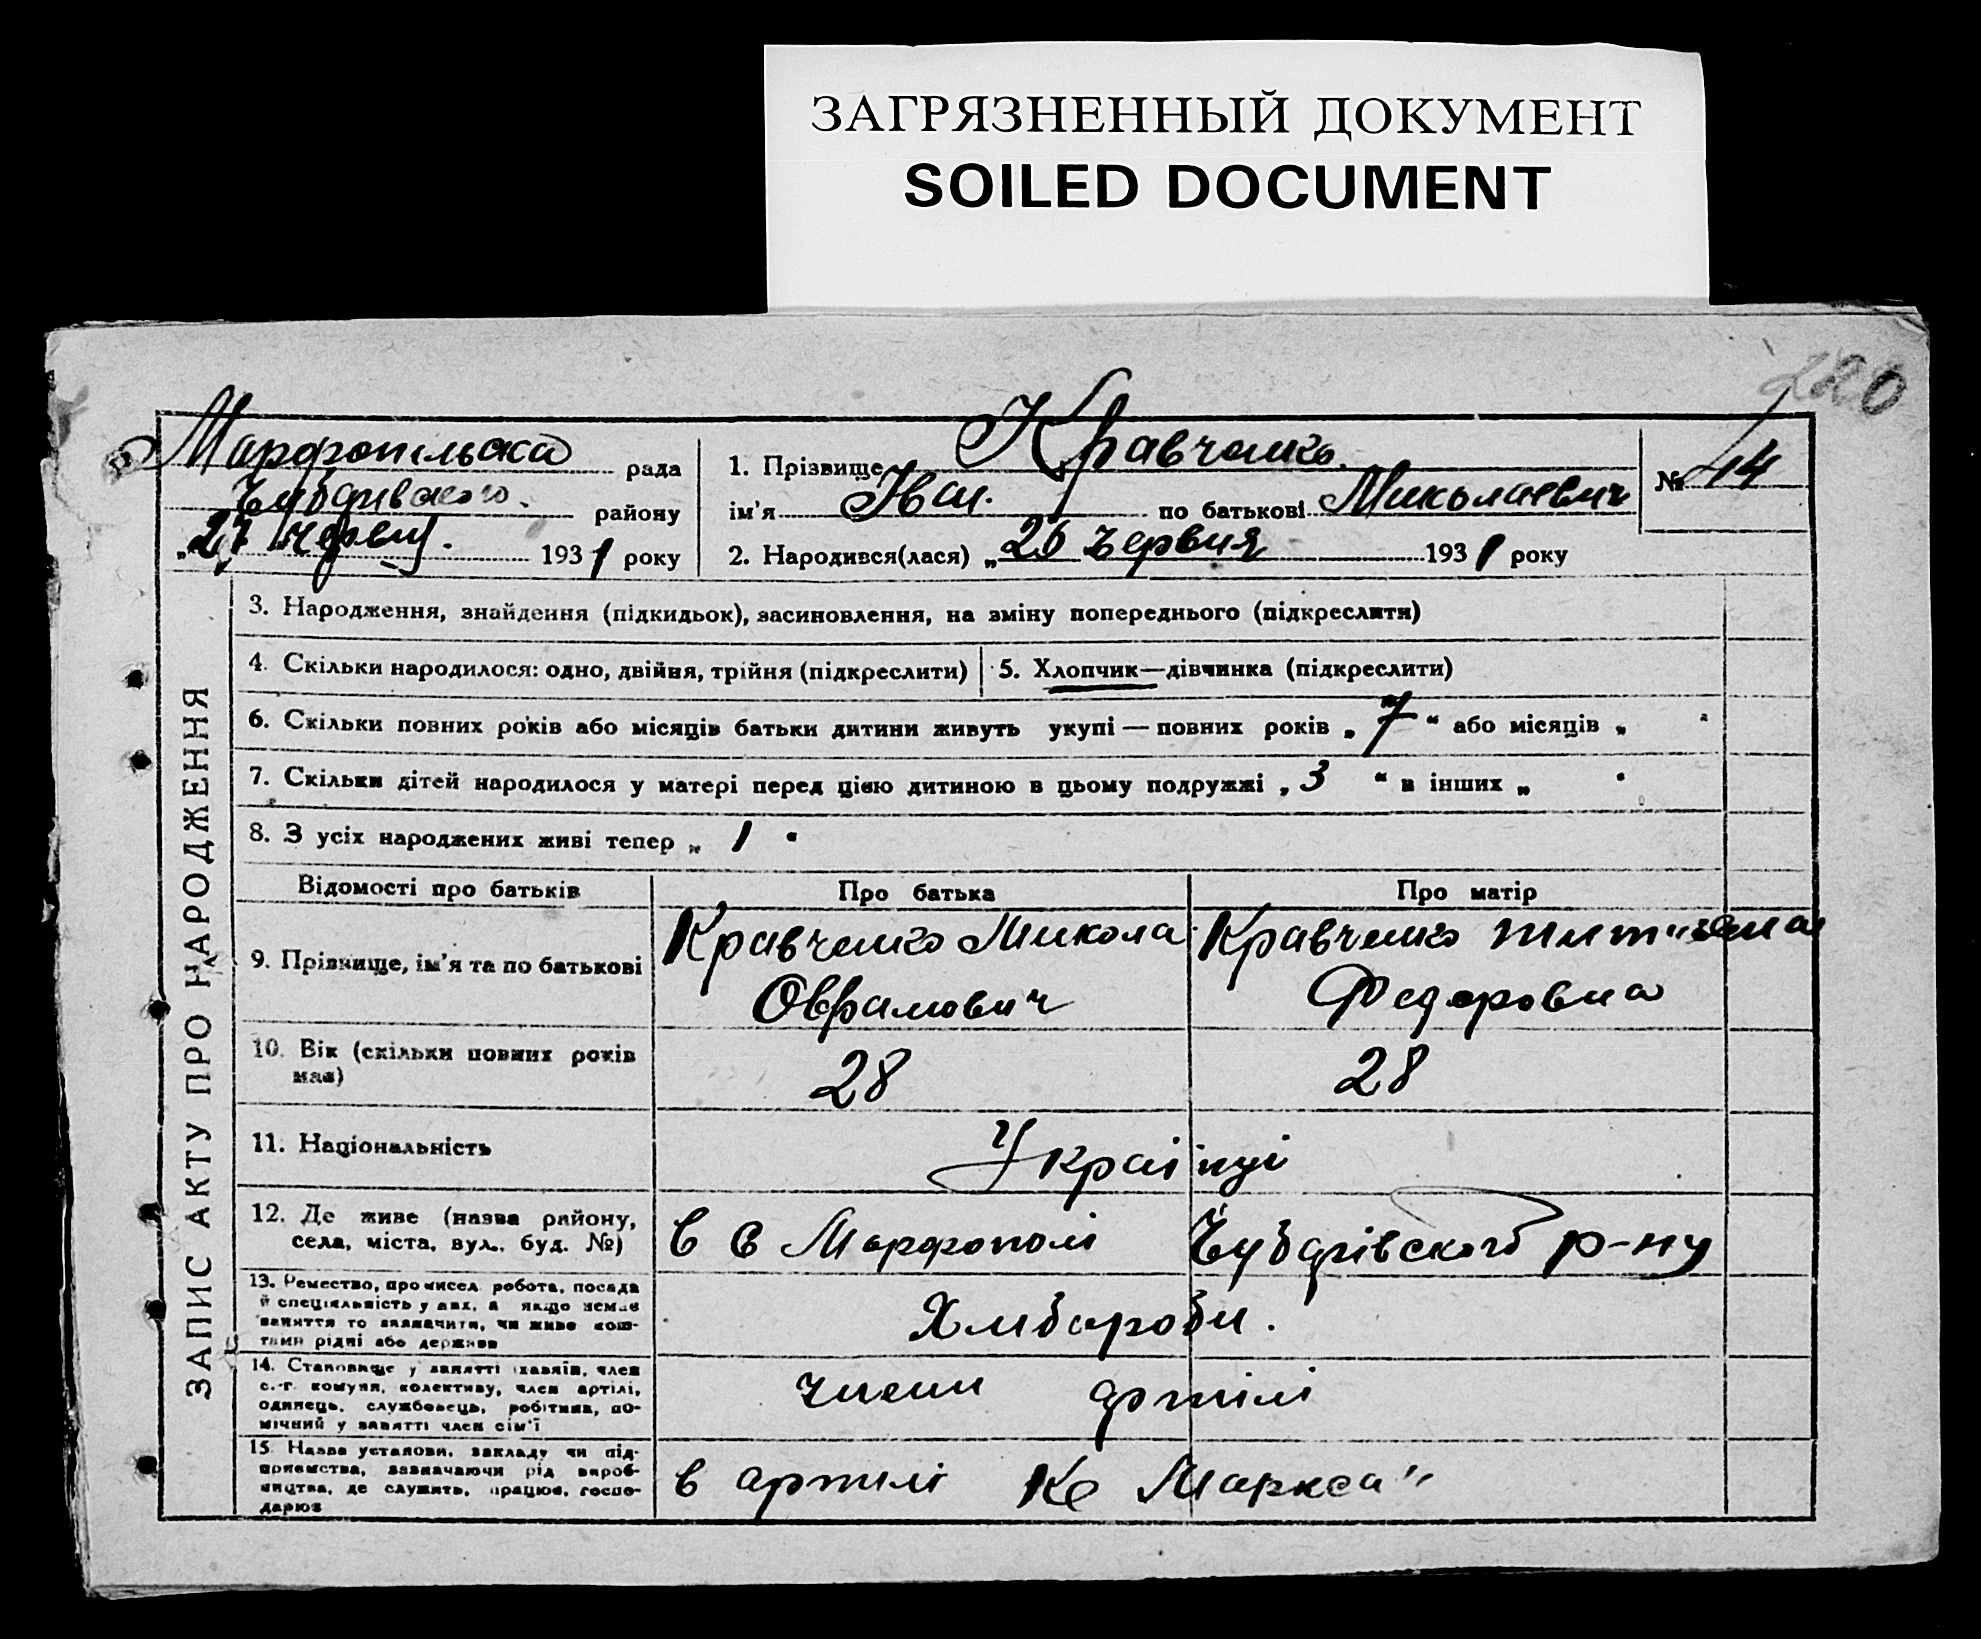 ЗАГРЯЗНЕННЫЙ ДОКУМЕНТ
SOILED DOCUMENT
220
Марфопільска рада
Чубарівского району
„27 червня. 1931 року
1. Прізвище Кравченко
ім'я Іван. по батькові Миколаевич
2. Народився(лася) „26 Червня 1931 року
№ 44
ЗАПИС АКТУ ПРО НАРОДЖЕННЯ
3. Народження, знайдення (підкидьок), засиновлення, на зміну попереднього (підкреслити)
4. Скільки народилося: одно, двійня, трійня (підкреслити)
5. Хлопчик—дівчинка (підкреслити)
6. Скільки повних років або місяців батьки дитини живуть укупі — повних років „ 7 “ або місяців „ “
7. Скільки дітей народилося у матері перед цією дитиною в цьому подружжі „ 3 “ в інших „ “
8. З усіх народжених живі тепер „ 1 “
Відомості про батьків Про батька Про матір
9. Прізвище, ім'я та по батькові
Кравченко Микола
Овфрамович
Кравченко
Федоровна
10. Вік (скільки повних років має)
28 28
11. Національність
Українці
12. Де живе (назва району, села, міста, вул., буд. №)
в с Марфополі Чубарівского р-ну
13. Ремество, промисел, робота, посада
й спеціяльність у них, а якщо немає
заняття то зазначити, чи живе кош-
тами рідні або держави
Хлибороби.
14. Становище у занятті (хазяїн, член
с.-г. комуни, колективу, член артілі,
одинець, службовець, робітник, по-
мічний у занятті член сім'ї
члени артілі
15. Назва установи, закладу чи під-
приємства, зазначаючи рід вироб-
ництва, де служить, працює, госпо-
дарює
в артилі Ке Маркса"